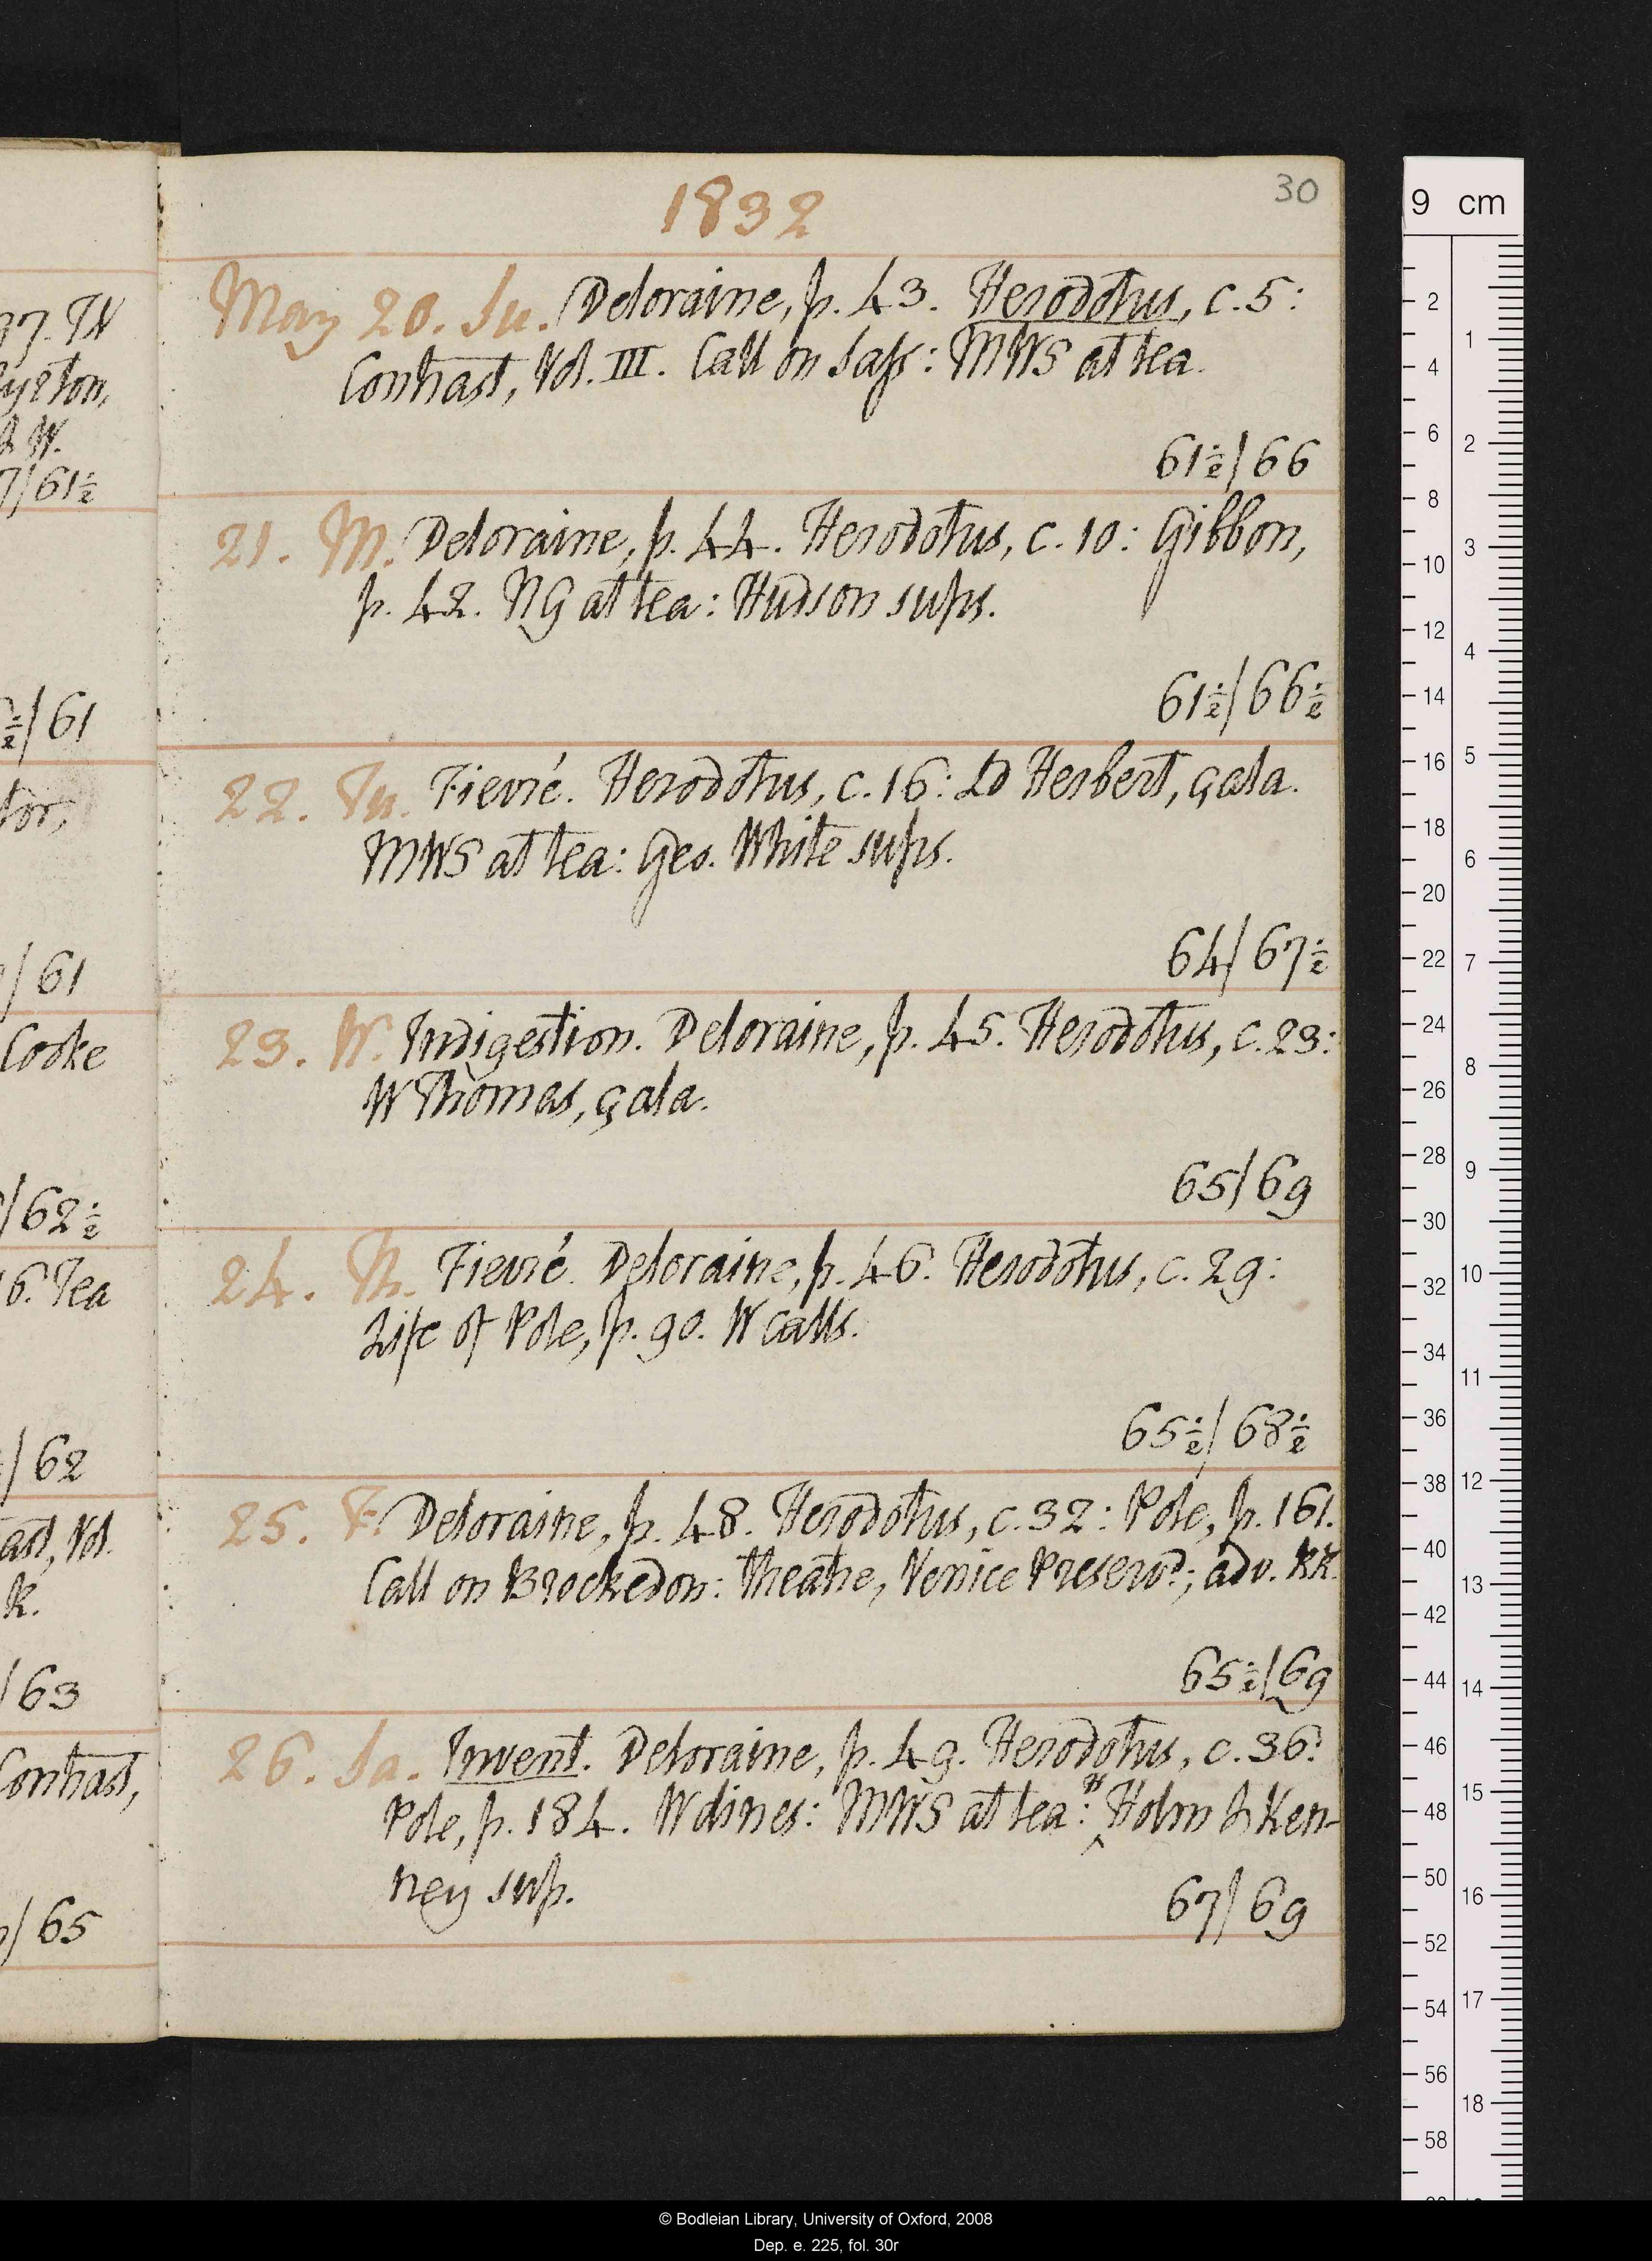 30
1832
May 20. Su. Deloraine, p. 43. Herodotus, c. 5:
Contrast, Vol. III. Call on Sass: MWS at tea.
61½/66
21. M. Deloraine, p. 44. Herodotus, c. 10: Gibbon,
p. 42. NG at tea: Hudson sups.
61½/66½
22. Tu. Fievré. Herodotus, c. 16: Ld Herbert, çala.
MWS at tea: Geo. White sups.
64/67½
23. W. Indigestion. Deloraine, p. 45. Herodotus, c. 23:
W Thomas, çala.
65/69
24. Th. Fievré. Deloraine, p. 46. Herodotus, c. 29:
Life of Pole, p. 90. W calls.
65½/68½
25. F. Deloraine, p. 48. Herodotus, c. 32: Pole, p. 161.
Call on Brockedon: theatre, Venice Preservd; adv. KK.
65½/69
26. Sa. Invent. Deloraine, p. 49. Herodotus, c. 36:
Pole, p. 184. W dines: MWS at tea: H Holm & Ken-
ney sup.
67/69
37. TN
yeton,
& W.
7/61½
½/61
tor,
/61
Cooke
/62½
6. Tea
/62
ast, Vol.
K.
/63
Contrast,
/65
9 cm
2
4
6
8
10
12
14
16
18
20
22
24
26
28
30
32
34
36
38
40
42
44
46
48
50
52
54
56
58
1
2
3
4
5
6
7
8
9
10
11
12
13
14
15
16
17
18
© Bodleian Library, University of Oxford, 2008
Dep. e. 225, fol. 30r